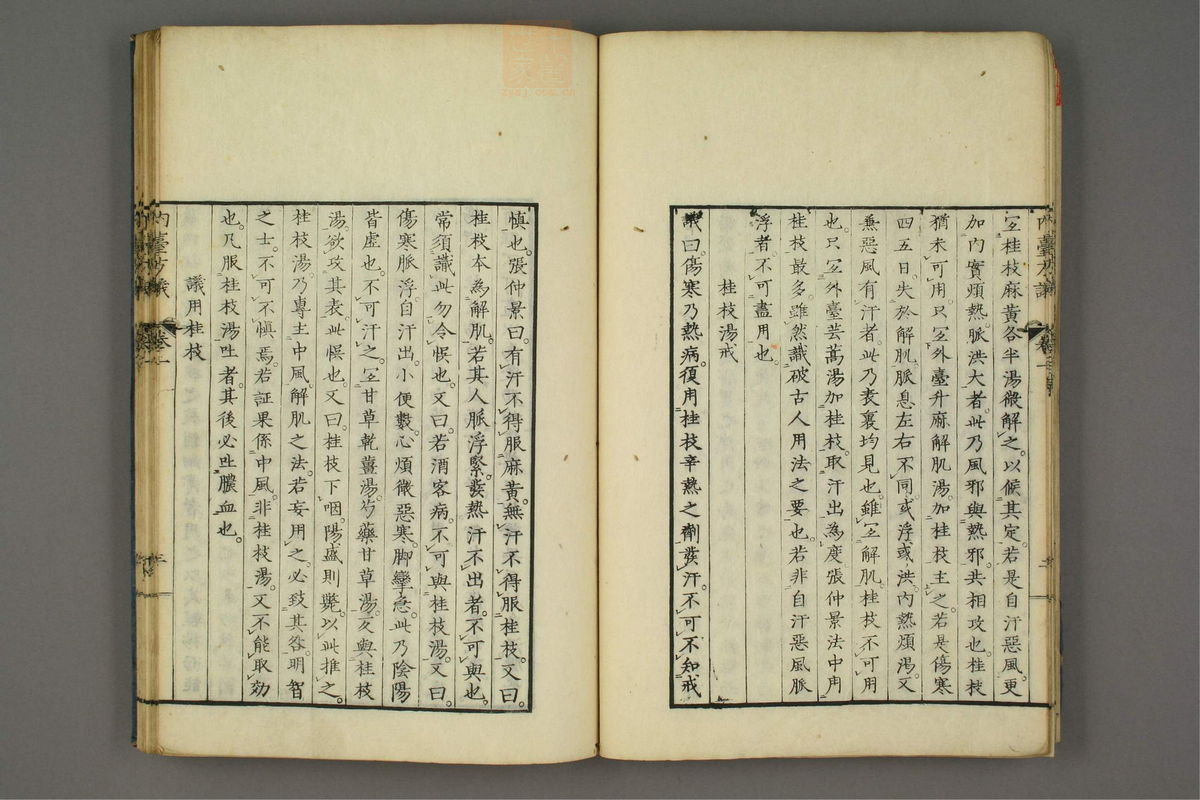 宜桂枝麻黃各半湯微解之以候其定若是自汗惡風更
加内實煩熱脈洪大者此乃風邪與熱邪共相攻也桂枝
猶未可用只宜外臺升麻解肌湯加桂枝主之若是傷寒
四五日失於解肌脈息左右不同或浮或洪内熱煩渴又
兼惡風有汗者此乃表裏均見也雖宜解肌桂枝不可用
也只宜外臺芸薖湯加桂枝取汗出為度張仲景法中用
桂枝最多雖然識破古人用法之要也若非自汗惡風脈
浮者不可盡用也
桂枝湯戒
議曰傷寒乃熱病復用桂枝辛熱之劑發汗不可不知戒
慎也張仲景曰有汗不得服麻黃無汗不得服桂枝又曰
桂枝本為解肌若其人脈浮緊發熱汗不出者不可與也
常須識此勿令悞也又曰若酒客病不可與桂枝湯又曰
傷寒脈浮自汗出小便數心煩微惡寒脚攣急此乃陰陽
皆虛也不可汗之宜甘草乾薑湯芍藥甘草湯反與桂枝
湯欲攻其表此悞也又曰桂枝下咽陽盛則斃以此推之
桂枝湯乃專主中風解肌之法若妄用之必致其咎明智
之士不可不慎焉若証果係中風非桂枝湯又不能取効
也凡服桂枝湯吐者其後必吐膿血也
議用桂枝
内臺方議
卷一
三